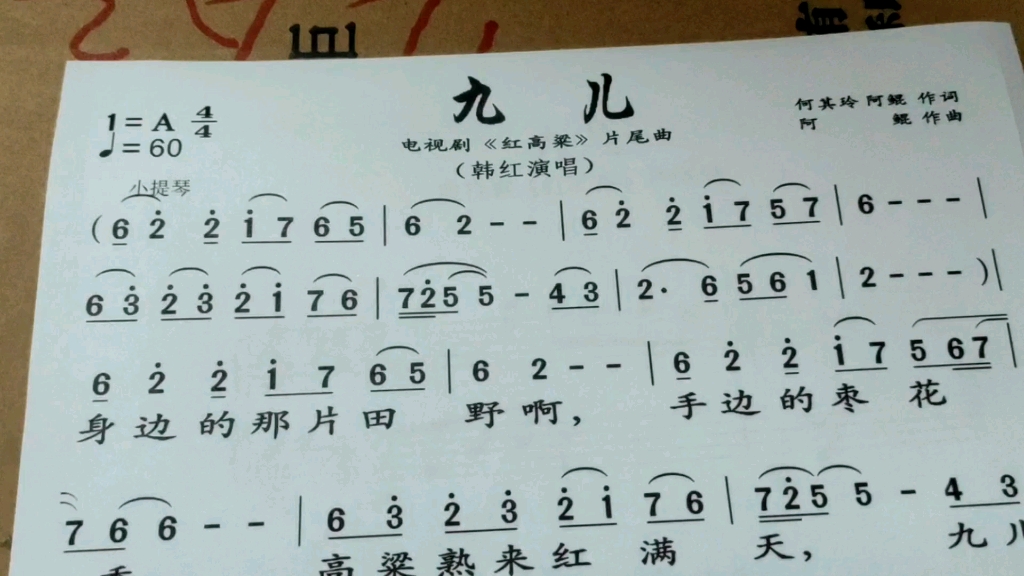 九 儿
1=A 4/4
♩=60
何其玲 阿鲲 作词
阿 鲲 作曲
电视剧《红高粱》片尾曲
（韩红演唱）
小提琴
(6 2̇ 2̇ i̇ 7 6 5 | 6 2 - - | 6 2̇ 2̇ i̇ 7 5 7 | 6 - - - |
6 3̇ 2̇ 3̇ 2̇ i̇ 7 6 | 7 2̇ 5 5 - 4 3 | 2· 6 5 6 1 | 2 - - - )|
6 2̇ 2̇ i̇ 7 6 5 | 6 2 - - | 6 2̇ 2̇ i̇ 7 5 6 7 |
身边的那片田 野啊， 手边的枣 花
7 6 6 - - | 6 3̇ 2̇ 3̇ 2̇ i̇ 7 6 | 7 2̇ 5 5 - 4 3
高粱熟来红 满 天， 九儿